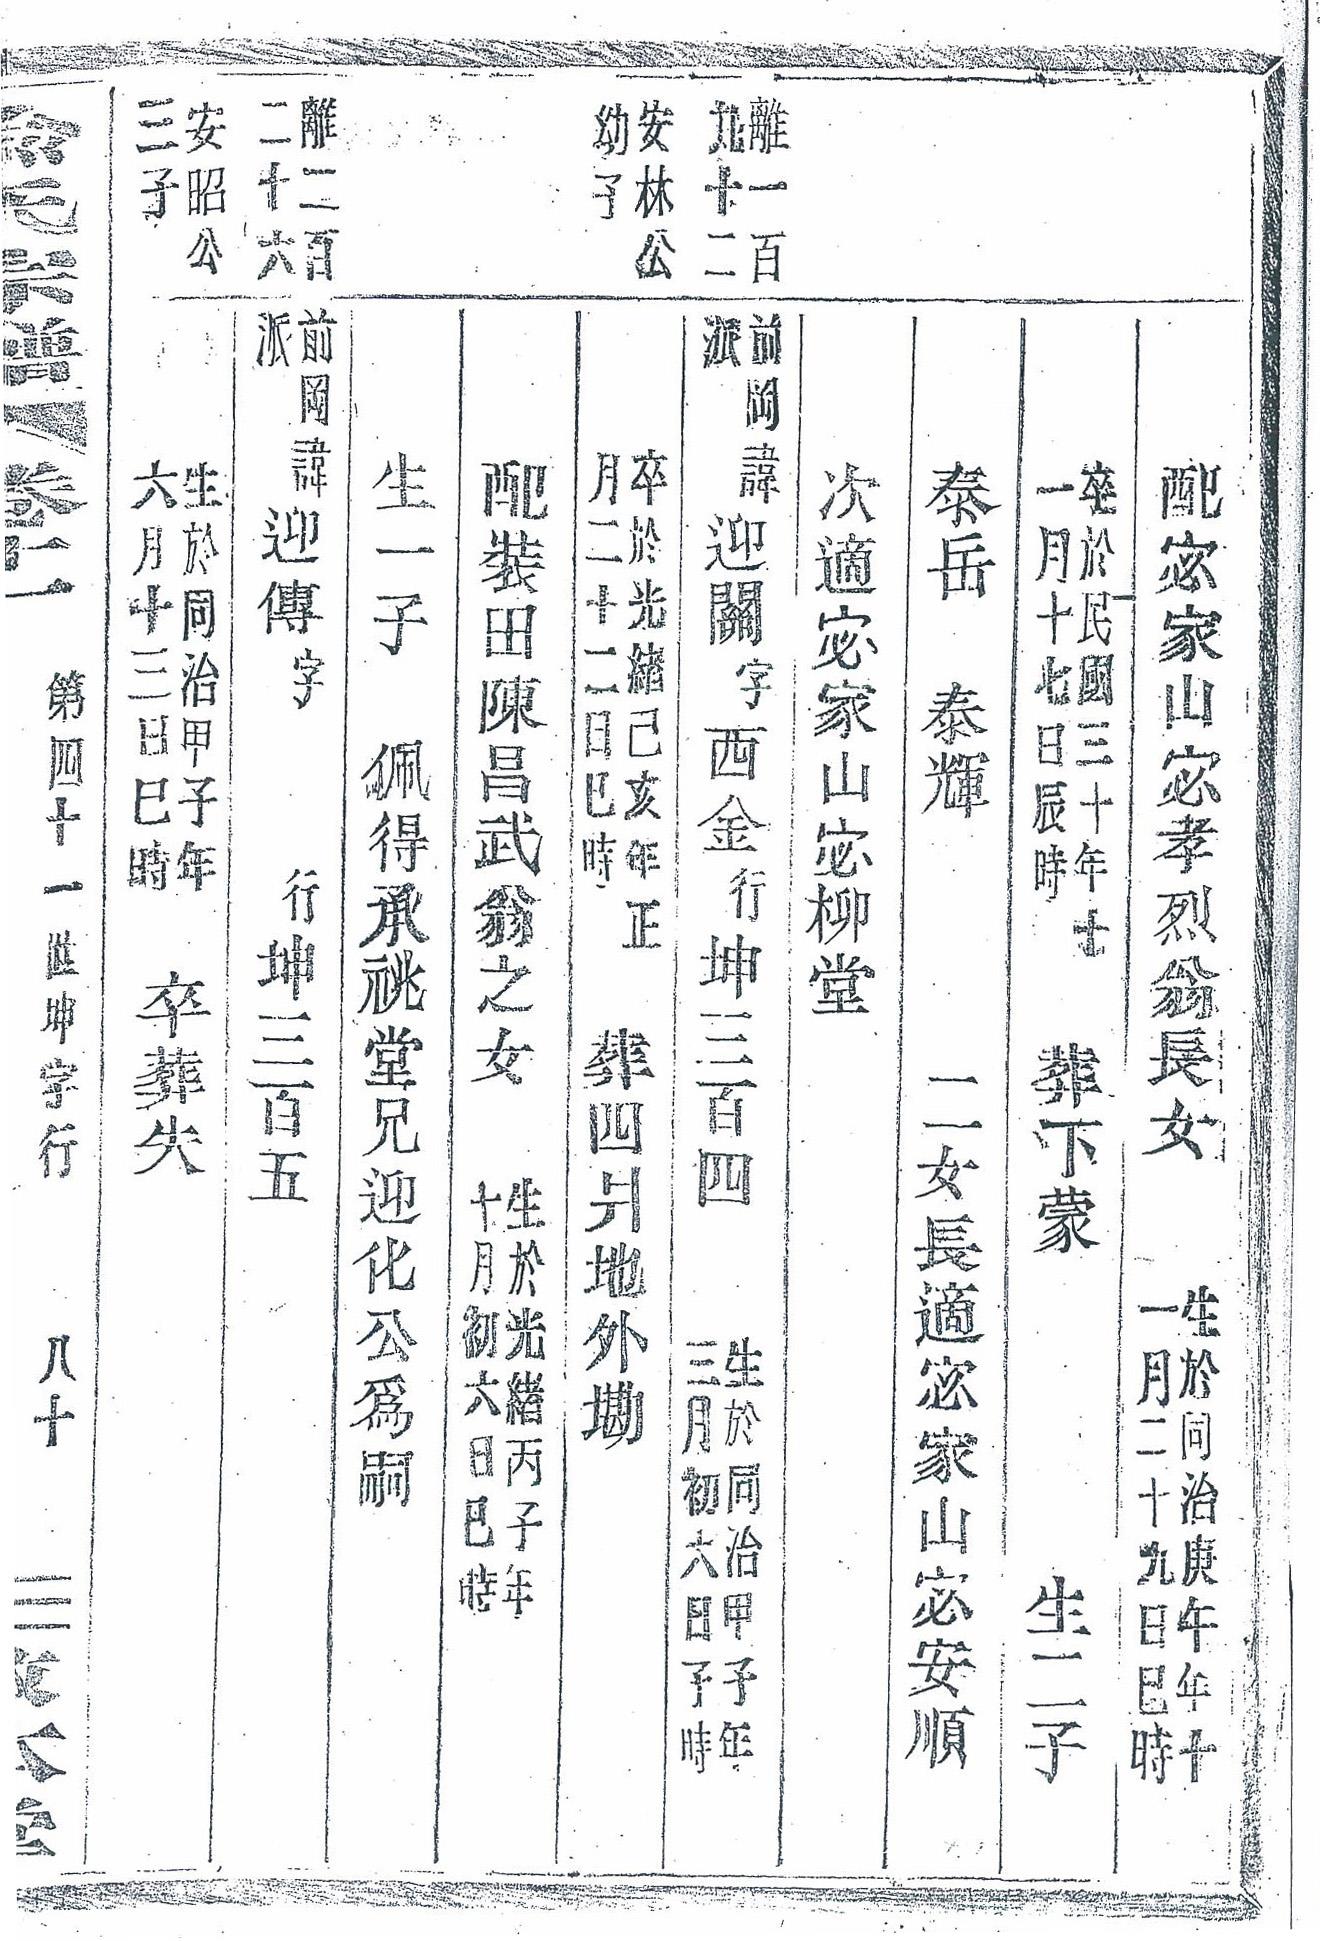 配宓家山宓孝烈翁長女
生於同治庚午年十
一月二十九日巳時
卒於民國三十年十
一月十七日辰時
葬下蒙
生二子
泰岳
泰輝
二女長適宓家山宓安順
次適宓家山宓柳堂
離一百
九十二
前岡
派
諱迎關字西金行坤三百四
生於同治甲子年
三月初六日子時
安林公
幼子
卒於光緒己亥年正
月二十二日巳時
葬四爿地外墈
配裝田陳昌武翁之女
生於光緒丙子年
十月初六日巳時
生一子
佩得承祧堂兄迎化公爲嗣
離二百
二十六
前岡
派
諱迎傳字
行坤三百五
安昭公
三子
生於同治甲子年
六月十三日巳時
卒葬失
氏宗譜
卷二
第四十一世坤字行
八十